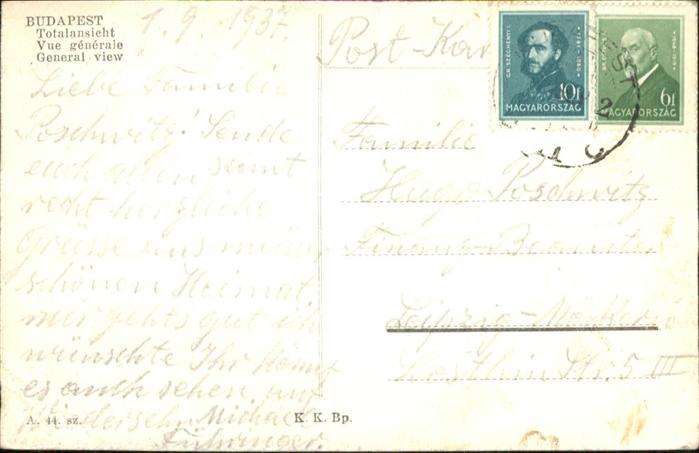 BUDAPEST
Totalansicht
Vue générale
General view
1. 9. 1937.
Post-Kar
Liebe Familie
Poschwitz! Sende
euch allen samt
recht herzliche
Grüsse aus meiner
schönen Heimat,
mir gehts gut ich
wünschte Ihr könnt
es auch sehen. auf
Wiedersehn Michael
Führinger.
A. 44. sz.
K. K. Bp.
GR. SZÉCHENYI I.
10f
MAGYARORSZÁG
6f
MAGYARORSZÁG
Familie
Hugo Poschwitz
Finanz-Beamter
Leipzig-
Str. 5 III